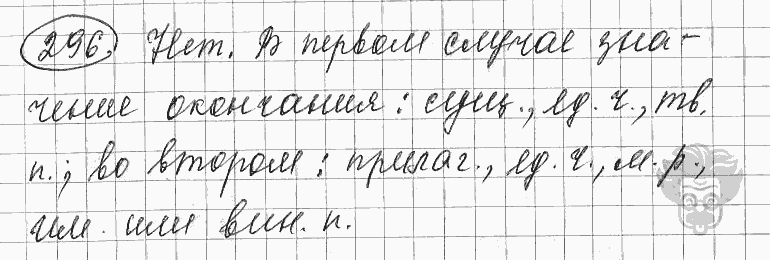 296. Нет. В первом случае зна-
чение окончания: сущ., ед. ч., тв.
п.; во втором: прилаг., ед. ч., м. р.,
им. или вин. п.